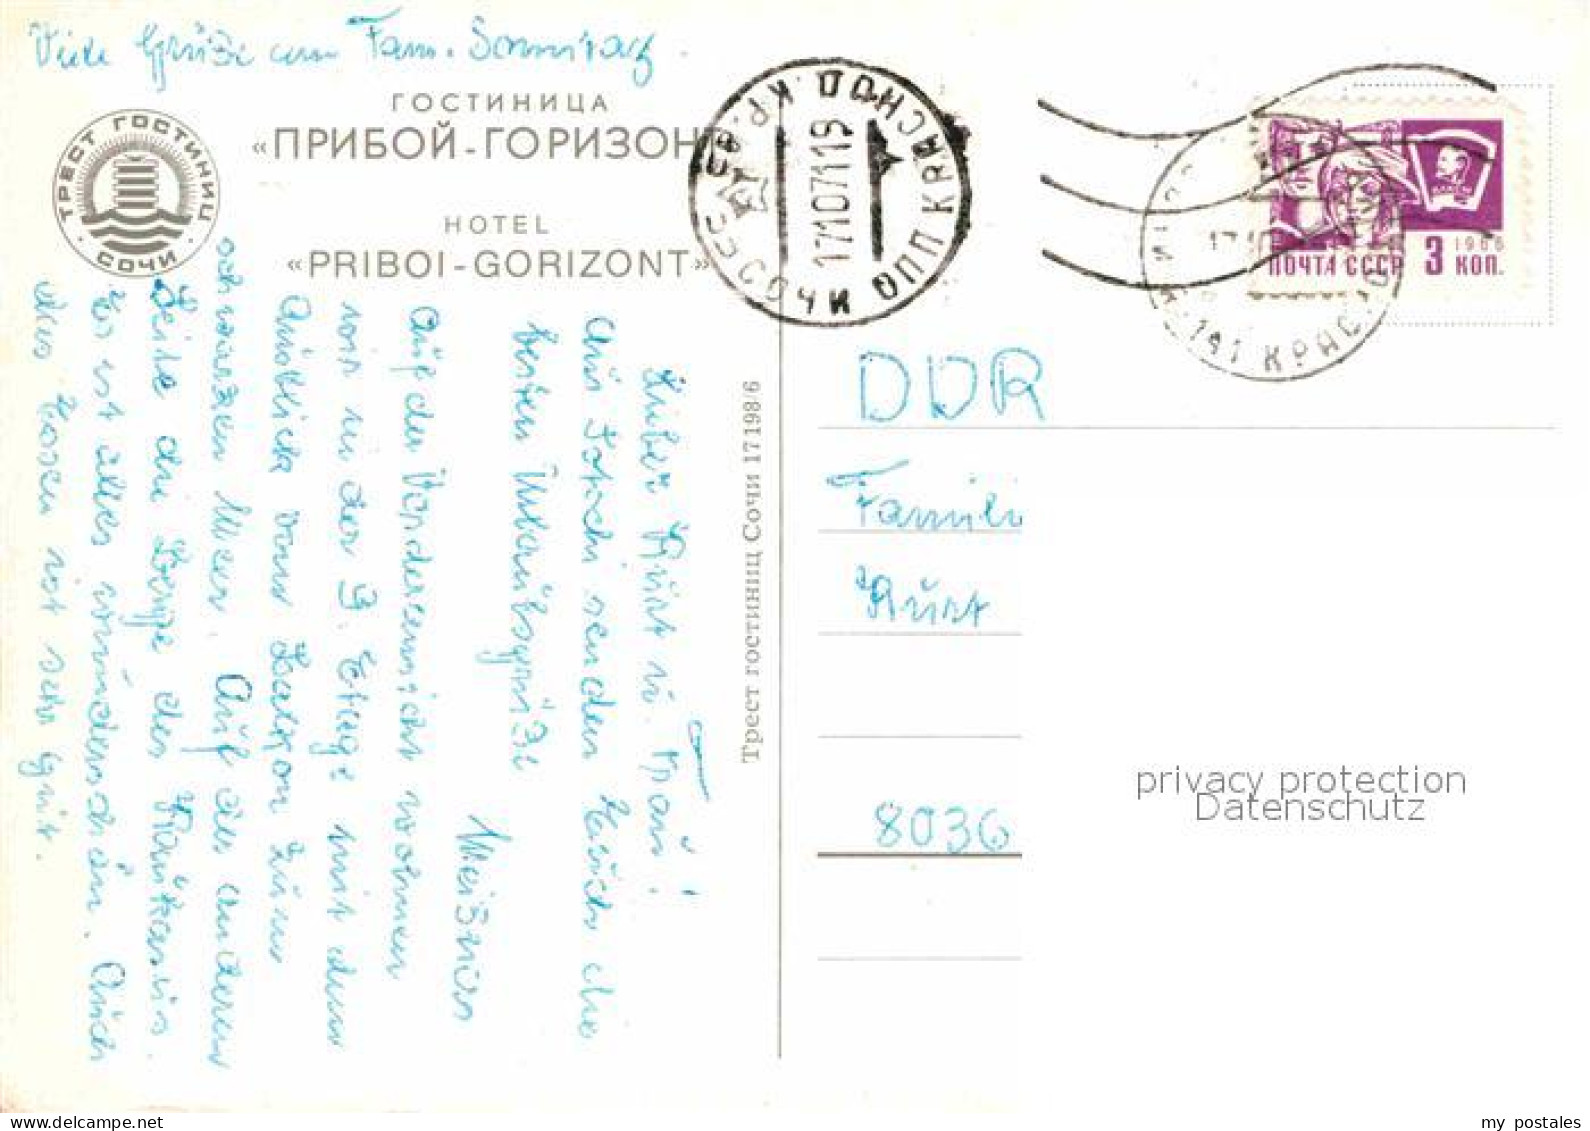 Viele Grüße an Fam. Sonnitag
ГОСТИНИЦА
«ПРИБОЙ-ГОРИЗОН
HOTEL
«PRIBOI-GORIZONT»
ТРЕСТ ГОСТИНИЦ
СОЧИ
СССР СОЧИ ОПП КРАСНОД. КР.
17107119
141 КРАС
17 10
ПОЧТА СССР 3 1966 КОП.
ВЛКСМ
Lieber Kurt u. Frau!
Aus Sotschi senden Euch die
besten Urlaubsgrüße
Meißners
Auf der Vorderansicht wohnen
wir in der 3. Etage mit dem
Anblick vom Balkon zum
schwarzen Meer. Auf der anderen
Seite die Berge des Kaukasus.
Es ist alles wunderschön. Auch
das Essen ist sehr gut.
Трест гостиниц Сочи 17198/6
DDR
Famili
Kurt
8036
privacy protection
Datenschutz
my_postales